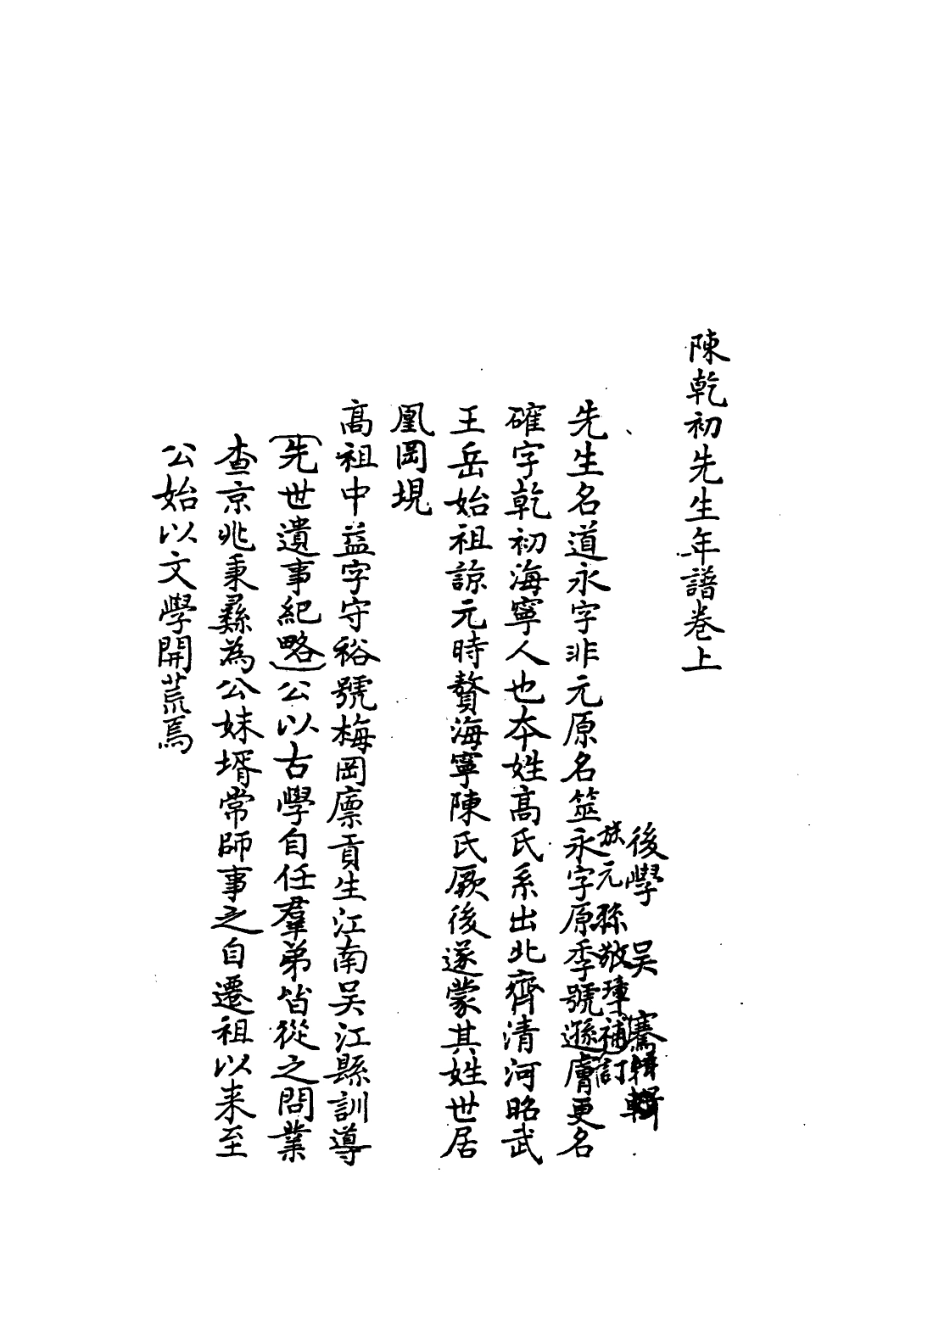 陳乾初先生年譜卷上
後學 吳騫輯
族元孫敬璋補訂
先生名道永字非元原名筮永字原季號遜膚更名
確字乾初海寧人也本姓高氏系出北齊清河昭武
王岳始祖諒元時贅海寧陳氏厥後遂蒙其姓世居
凰岡垷
高祖中益字守裕號梅岡廪貢生江南吴江縣訓導
(先世遺事紀略)公以古學自任羣弟皆從之問業
查京兆秉彝為公妹壻常師事之自遷祖以来至
公始以文學開荒焉